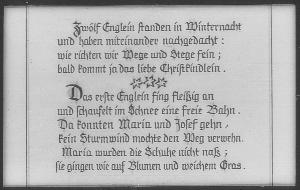 Zwölf Englein standen in Winternacht
und haben miteinander nachgedacht:
wie richten wir Wege und Stege fein;
bald kommt ja das liebe Christkindlein.
Das erste Englein fing fleißig an
und schaufelt im Schnee eine freie Bahn.
Da konnten Maria und Josef gehn,
kein Sturmwind mochte den Weg verwehn.
Maria wurden die Schuhe nicht naß;
sie gingen wie auf Blumen und weichem Gras.